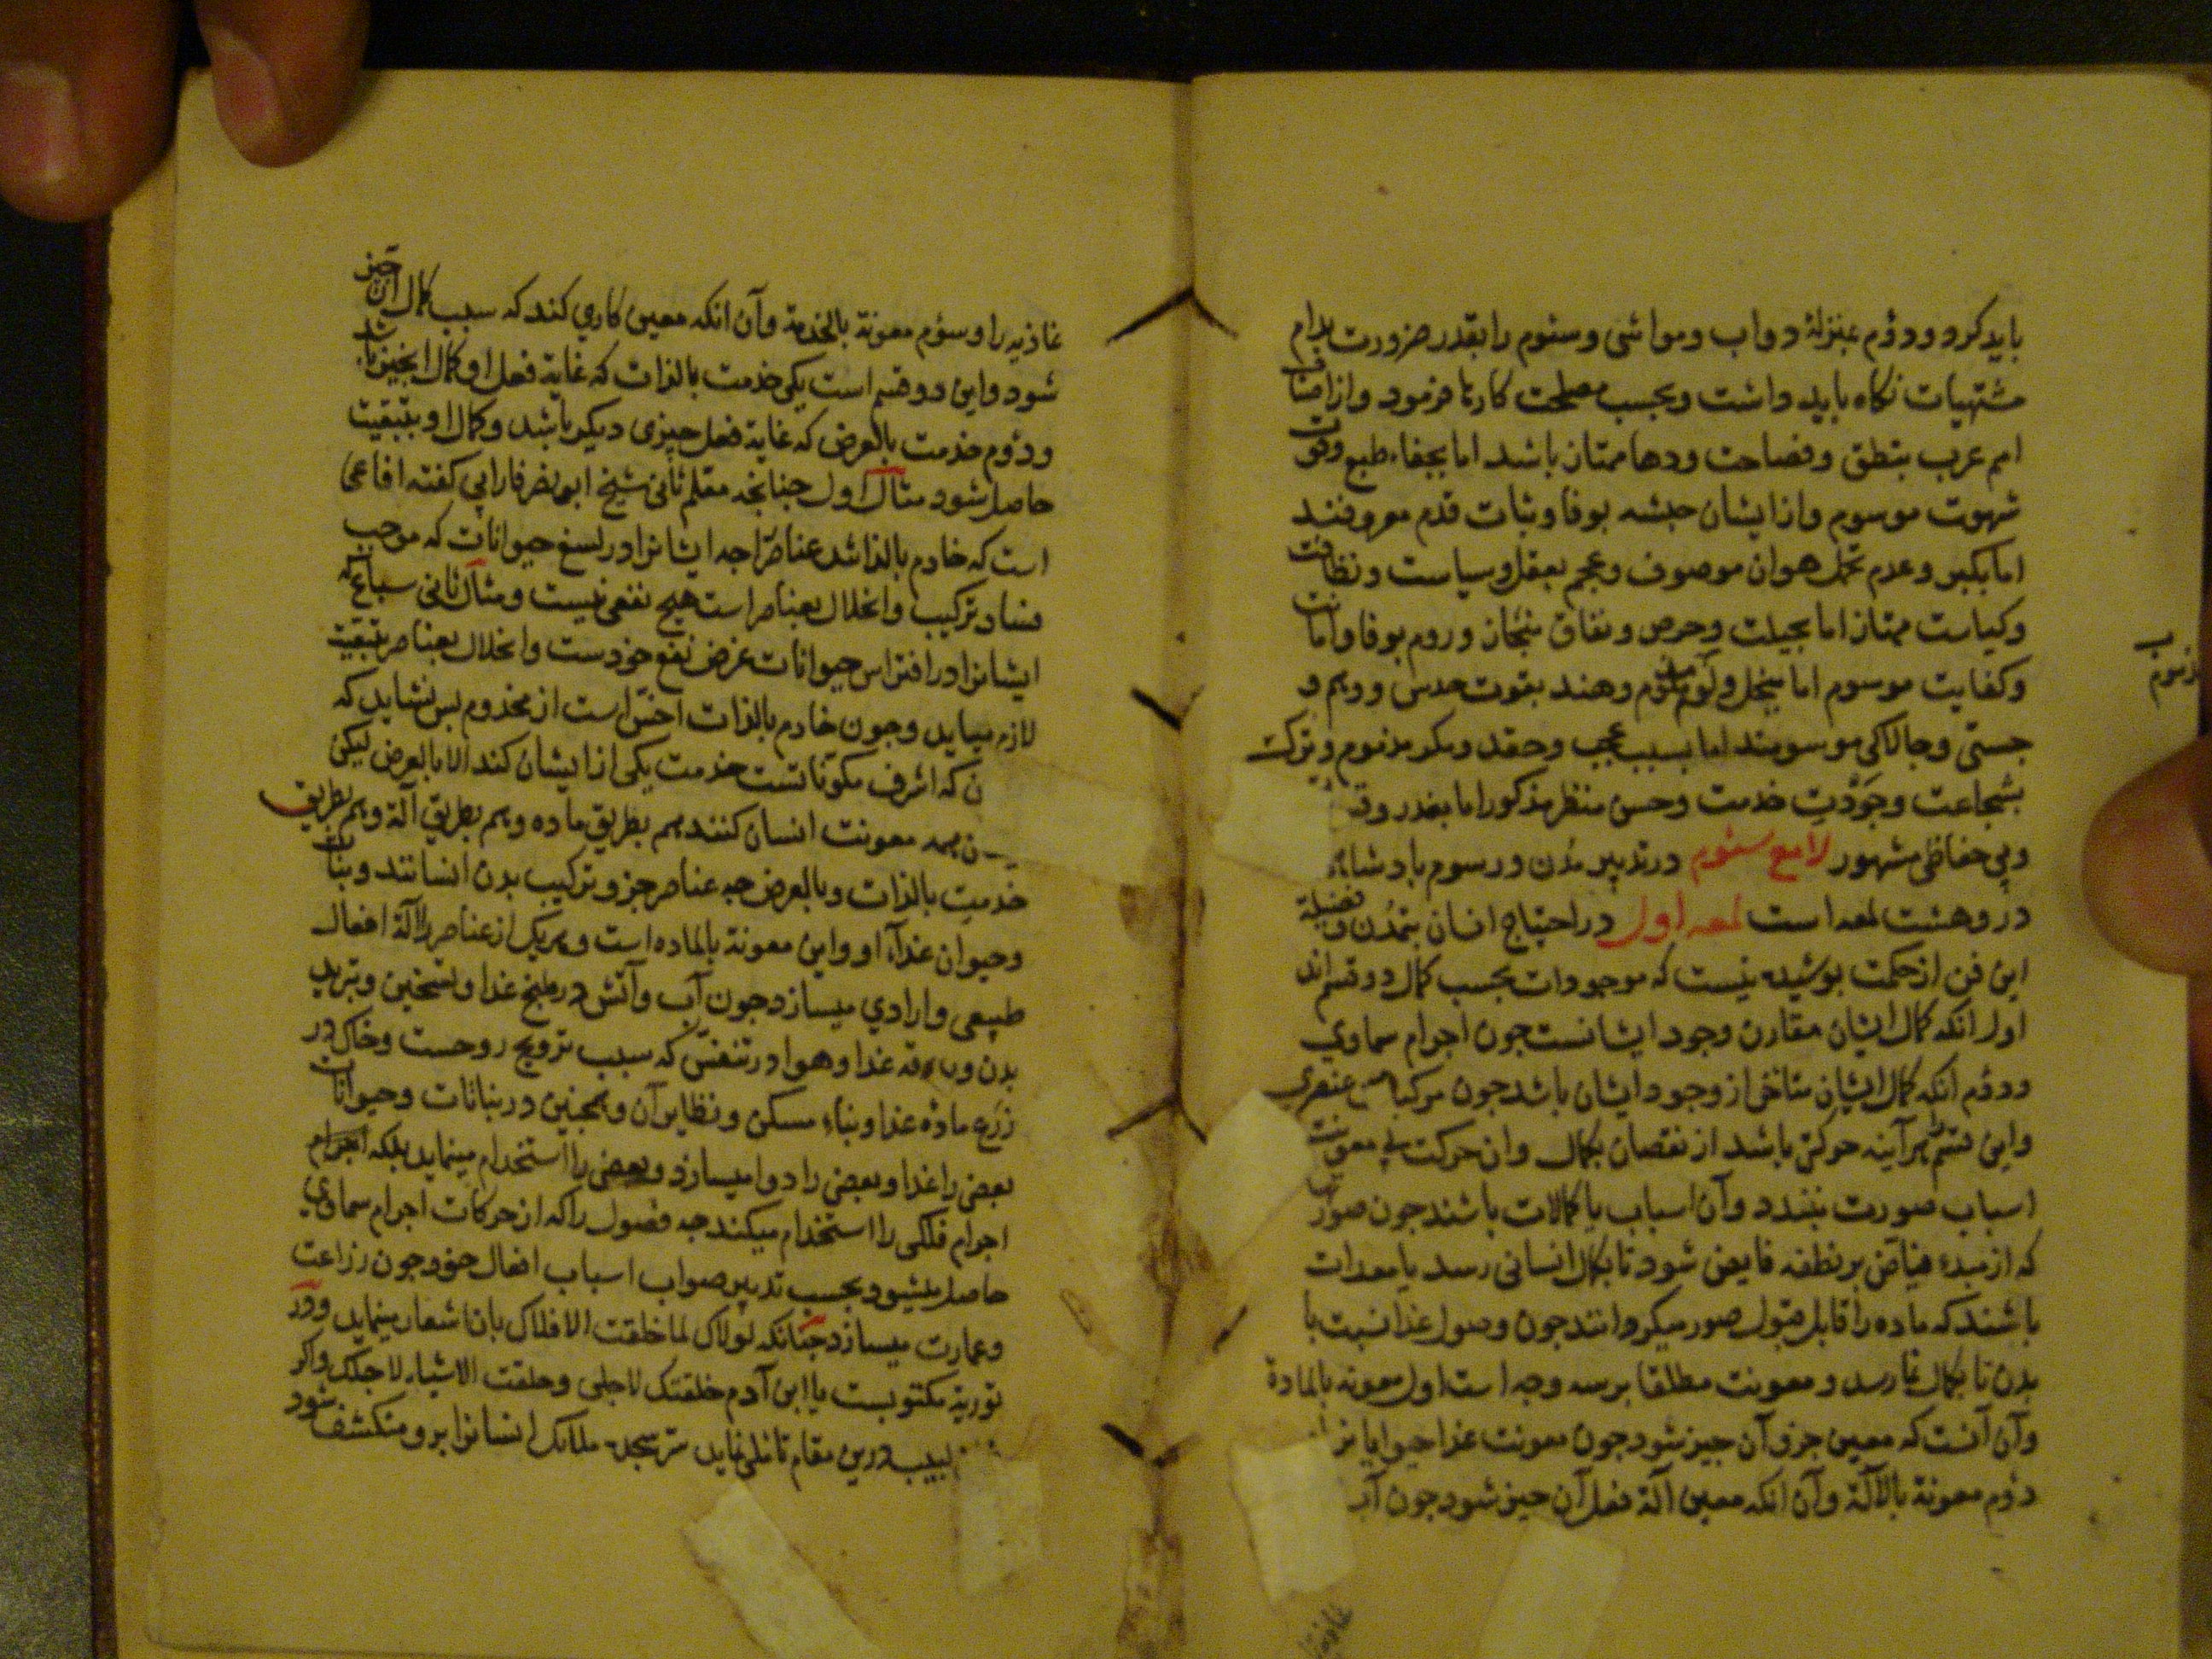 باید کرد و دوم بمنزلهٔ دواب و مواشی و سئوم را بقدر ضرورت بدام
مشتهیات نکاه باید داشت و بحسب مصلحت کارنا فرمود و از اصناف
امم عرب بنطق و فصاحت و دها ممتاز باشد اما بجفاء طبع و قوت
شهوت موسوم و از ایشان حبشه بوفا و ثبات قدم معروفند
اما بکبر و عدم تحمل هوان موصوف و عجم بعقل و سیاست و نظافت
و کیاست ممتاز اما بحیلت و حرص و نفاق منحاز و روم بوفا و امانت
و کفایت موسوم اما ببخل و لؤم ملوم و هند بقوت حدس و وهم و
جستی و جالاکی موسومند اما بسبب عجب و حقد و مکر مذموم و ترک
بشجاعت و جودت خدمت و حسن منظر مذکور اما بغدر و
وبی حفاظی مشهور لامع سئوم در تدبیر مدن و رسوم بادشاهی
درو هشت لمعه است لمعه اول در احتیاج انسان بتمدن و فضیلة
این فن از حکمت بوشیده نیست که موجودات بحسب کمال دو قسم اند
اول انکه کمال ایشان مقارن وجود ایشانست جون اجرام سماوی
و دوم انکه کمال ایشان متاخر از وجود ایشان باشد جون مرکبات عنصری
و این قسم را هر آینه حرکتی باشد از نقصان بکمال و ان حرکت بی معونت
اسباب صورت نبندد و آن اسباب یا کمالات باشند جون صور
که از مبدء فیاض بر نطفه فایض شود تا بکمال انسانی رسد یا معدات
باشند که ماده را قابل قبول صور میکردانند جون وصول غذا نسبت با
بدن تا بکمال نما رسد و معونت مطلقا بر سه وجه است اول معونه بالمادة
و آن آنست که معین جزو آن جیز شود جون معونت غذا حیوانا
دوم معونة بالآلة و آن انکه معین آلة فعل آن جیز شود جون آب
مذموم
غاذیه
غاذیه را و سئوم معونة بالخدمة و آن انکه معین کاری کند که سبب کمال آن جیز
شود و این دو قسم است یکی خدمت بالذات که غایة فعل او کمال انجیز باشد
و دوم خدمت بالعرض که غایة فعل جیزی دیکر باشد و کمال او بتبعیت
حاصل شود مثال اول جنانجه معلم ثانی شیخ ابو نصر فارابی کفته افاعی
است که خادم بالذاتند عناصر را جه ایشانرا در لسع حیوانات که موجب
فساد ترکیب و انحلال بعناصر است هیج نفعی نیست و مثال ثانی سباع که
ایشانرا در افتراس حیوانات غرض نفع خودست و انحلال بعناصر بتبعیت
لازم میاید و جون خادم بالذات اخس است از مخدوم بس نشاید که
ن که اشرف مکوناتست خدمت یکی از ایشان کند الا بالعرض لیکن
ن همه معونت انسان کنند هم بطریق ماده و هم بطریق آلة و هم بطریق
خدمت بالذات و بالعرض جه عناصر جزو ترکیب بدن انسانند و نبات
و حیوان غذاء او و این معونة بالماده است و هریک از عناصر را آلة افعال
طبیعی و ارادی میسازد جون آب و آتش در طبخ غذا و تسخین و تبرید
بدن و بدرقه غذا و هوا در تنفس که سبب ترویح روحست و خاک در
زرع مادهٔ غذا و بناء مسکن و نظایر آن و همجنین در نباتات و حیوانات
بعضی را غذا و بعضی را دوا میسازد و بعضی را استخدام مینماید بلکه اجرام
اجرام فلکی را استخدام میکند جه فصول را که از حرکات اجرام سماوی
حاصل میشود بحسب تدبیر صواب اسباب افعال خود جون زراعت
و عمارت میسازد جنانکه لولاک لما خلقت الافلاک بان اشعار مینماید و در
توریة مکتوبست یا ابن آدم خلقتک لاجلی و خلقت الاشیاء لاجلک و اکر
لبیب درین مقام تاملی نماید سر سجده ملائک انسانرا برو منکشف شود